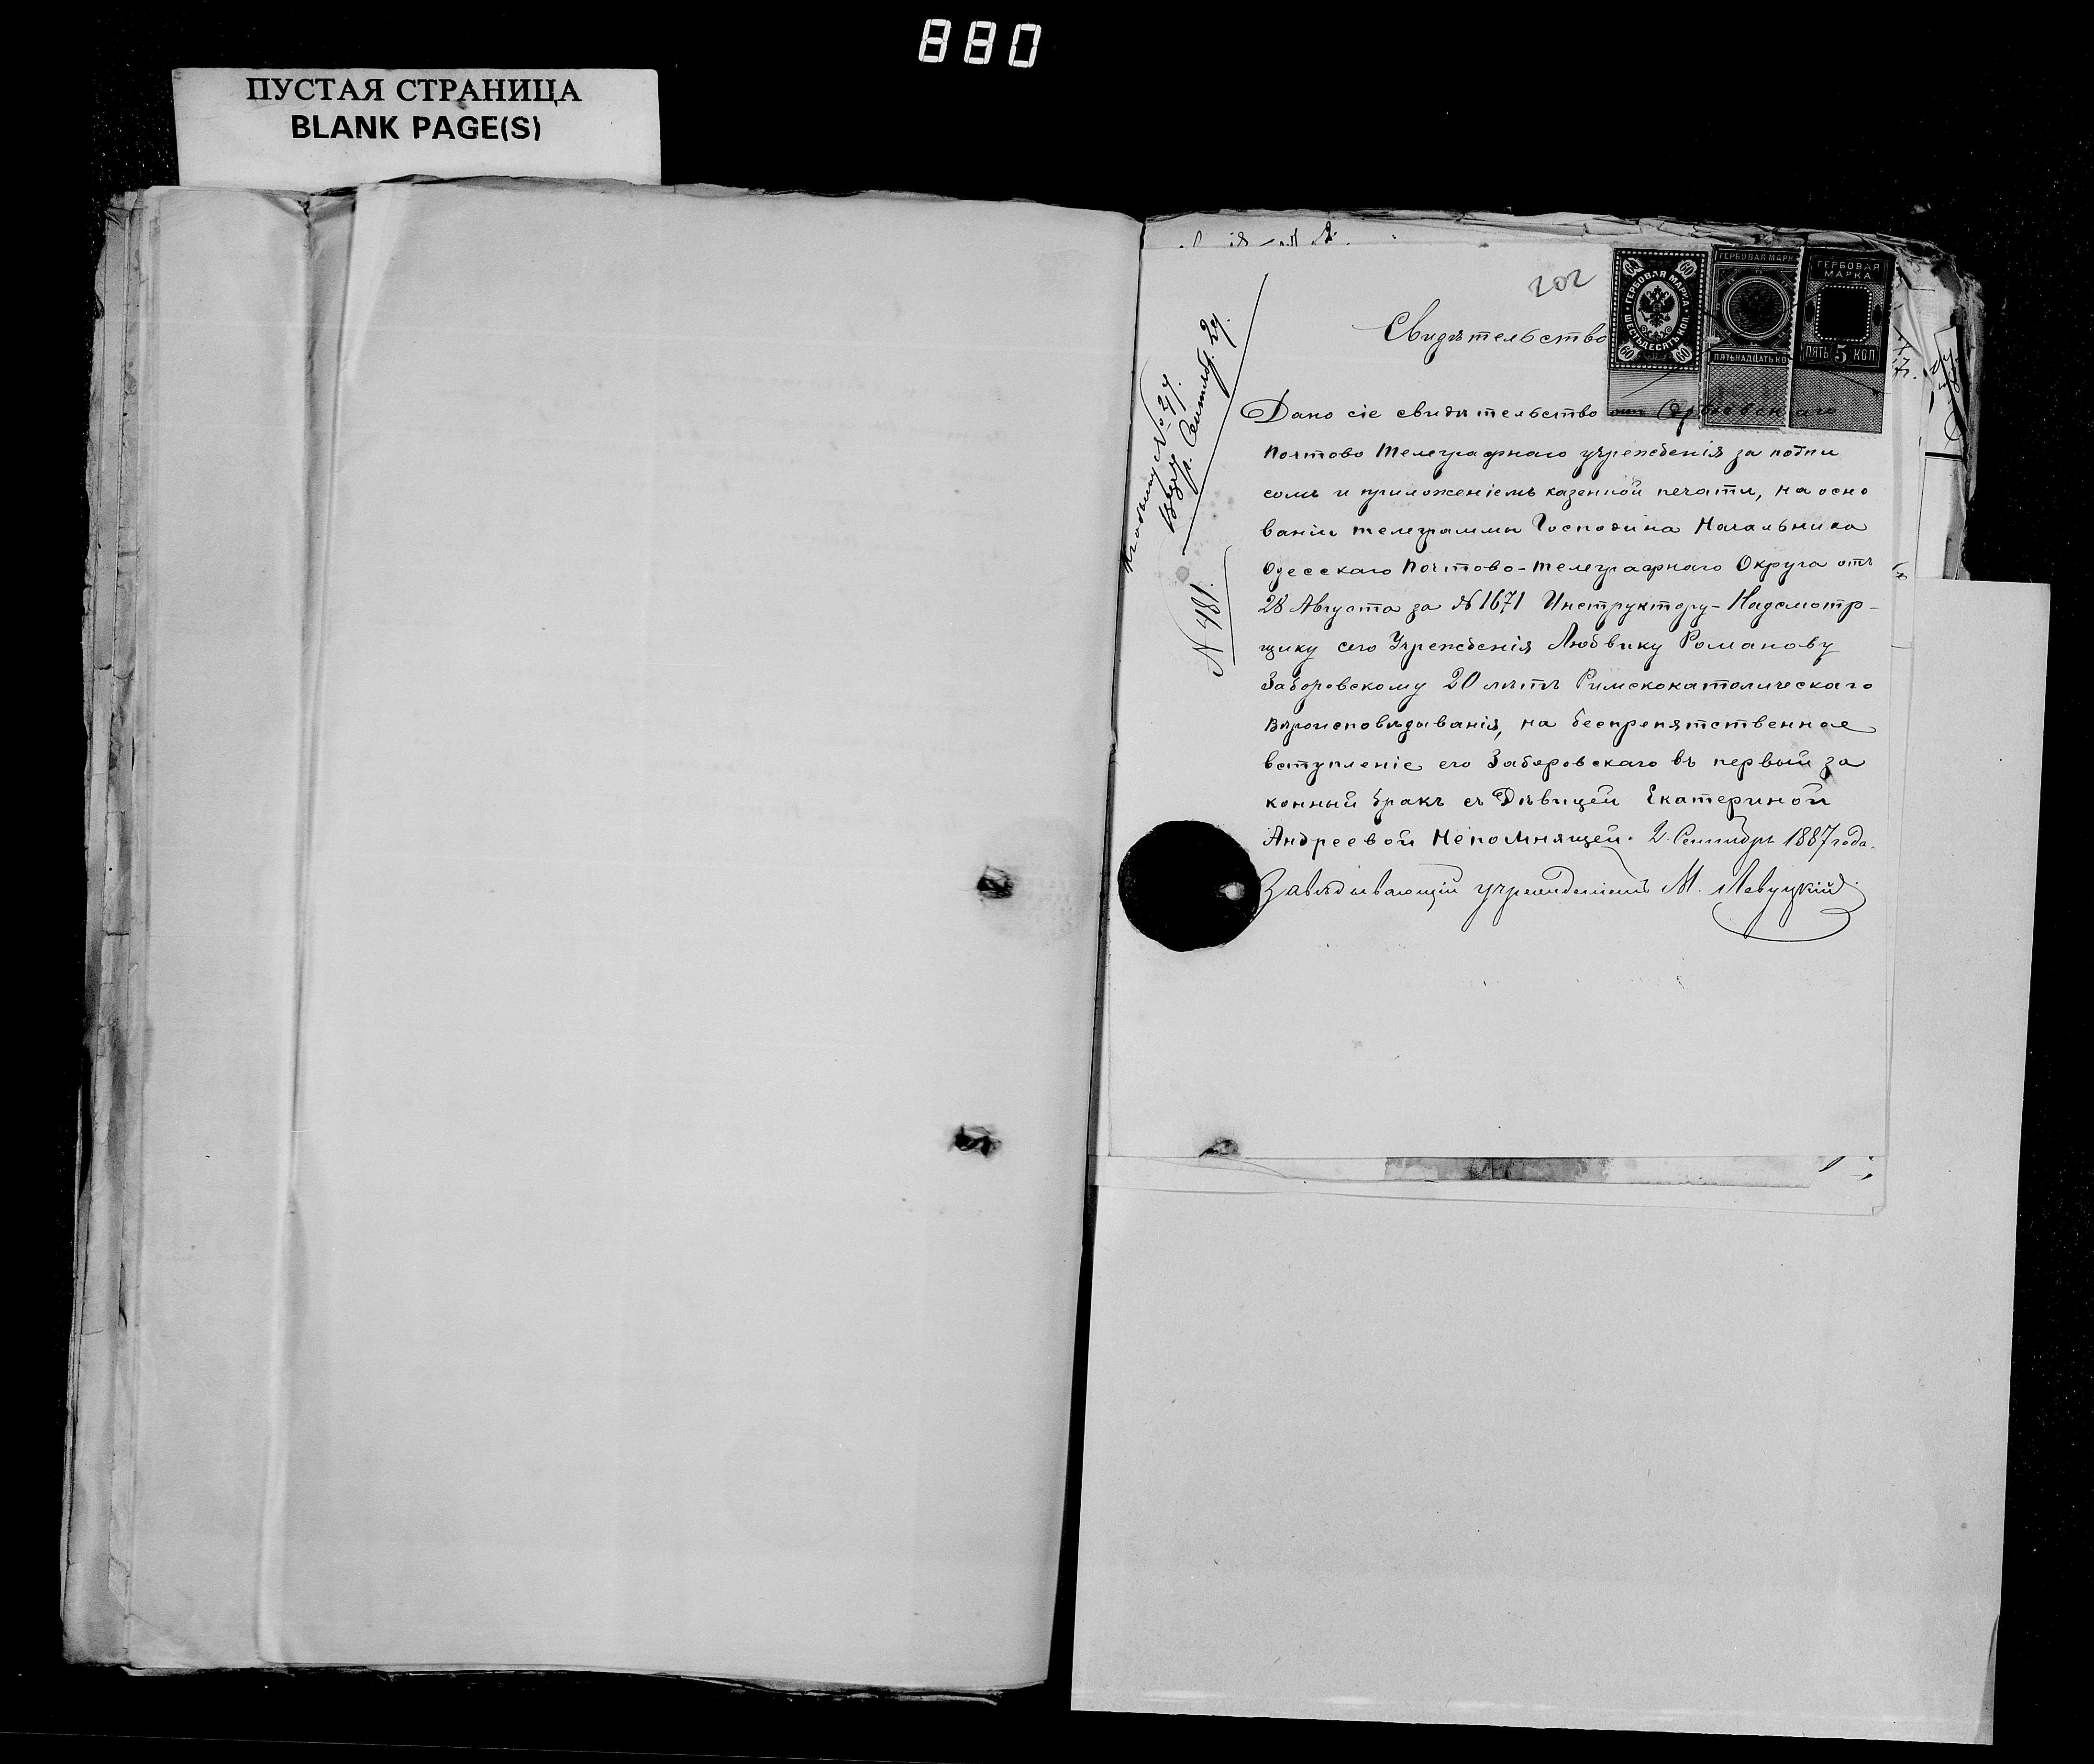 880
ПУСТАЯ СТРАНИЦА
BLANK PAGE(S)
202
ГЕРБОВАЯ МАРКА
ШЕСТЬДЕСЯТЪ КОП.
60 60 60 60
ГЕРБОВАЯ МАРК
ПЯТЬНАДЦАТЬ КО
ГЕРБОВАЯ
МАРКА
ПЯТЬ 5 КОП
Свидѣтельство
№ 27.
Сентябр. 29.
N 481.
Дано сіе свидѣтельство отъ
Почтово Телеграфнаго учрежденія за подпи
сомъ и приложеніемъ казенной печати, на осно
ваніи телеграммы Господина Начальника
Одесскаго Почтово-Телеграфнаго Округа отъ
28 Августа за N 1671 Инструктору-Надсмотр-
щику сего Учрежденія Людвику Романову
Заборовскому 20 лѣтъ Римскокатолическаго
Вѣроисповѣдыванія, на беспрепятственное
вступленіе его Заборовскаго въ первый за
конный бракъ съ Дѣвицей Екатериной
Андреевой Непомнящей. 2 Сентября 1887 года.
Завѣдывающій учрежденіемъ М. Левуцкій